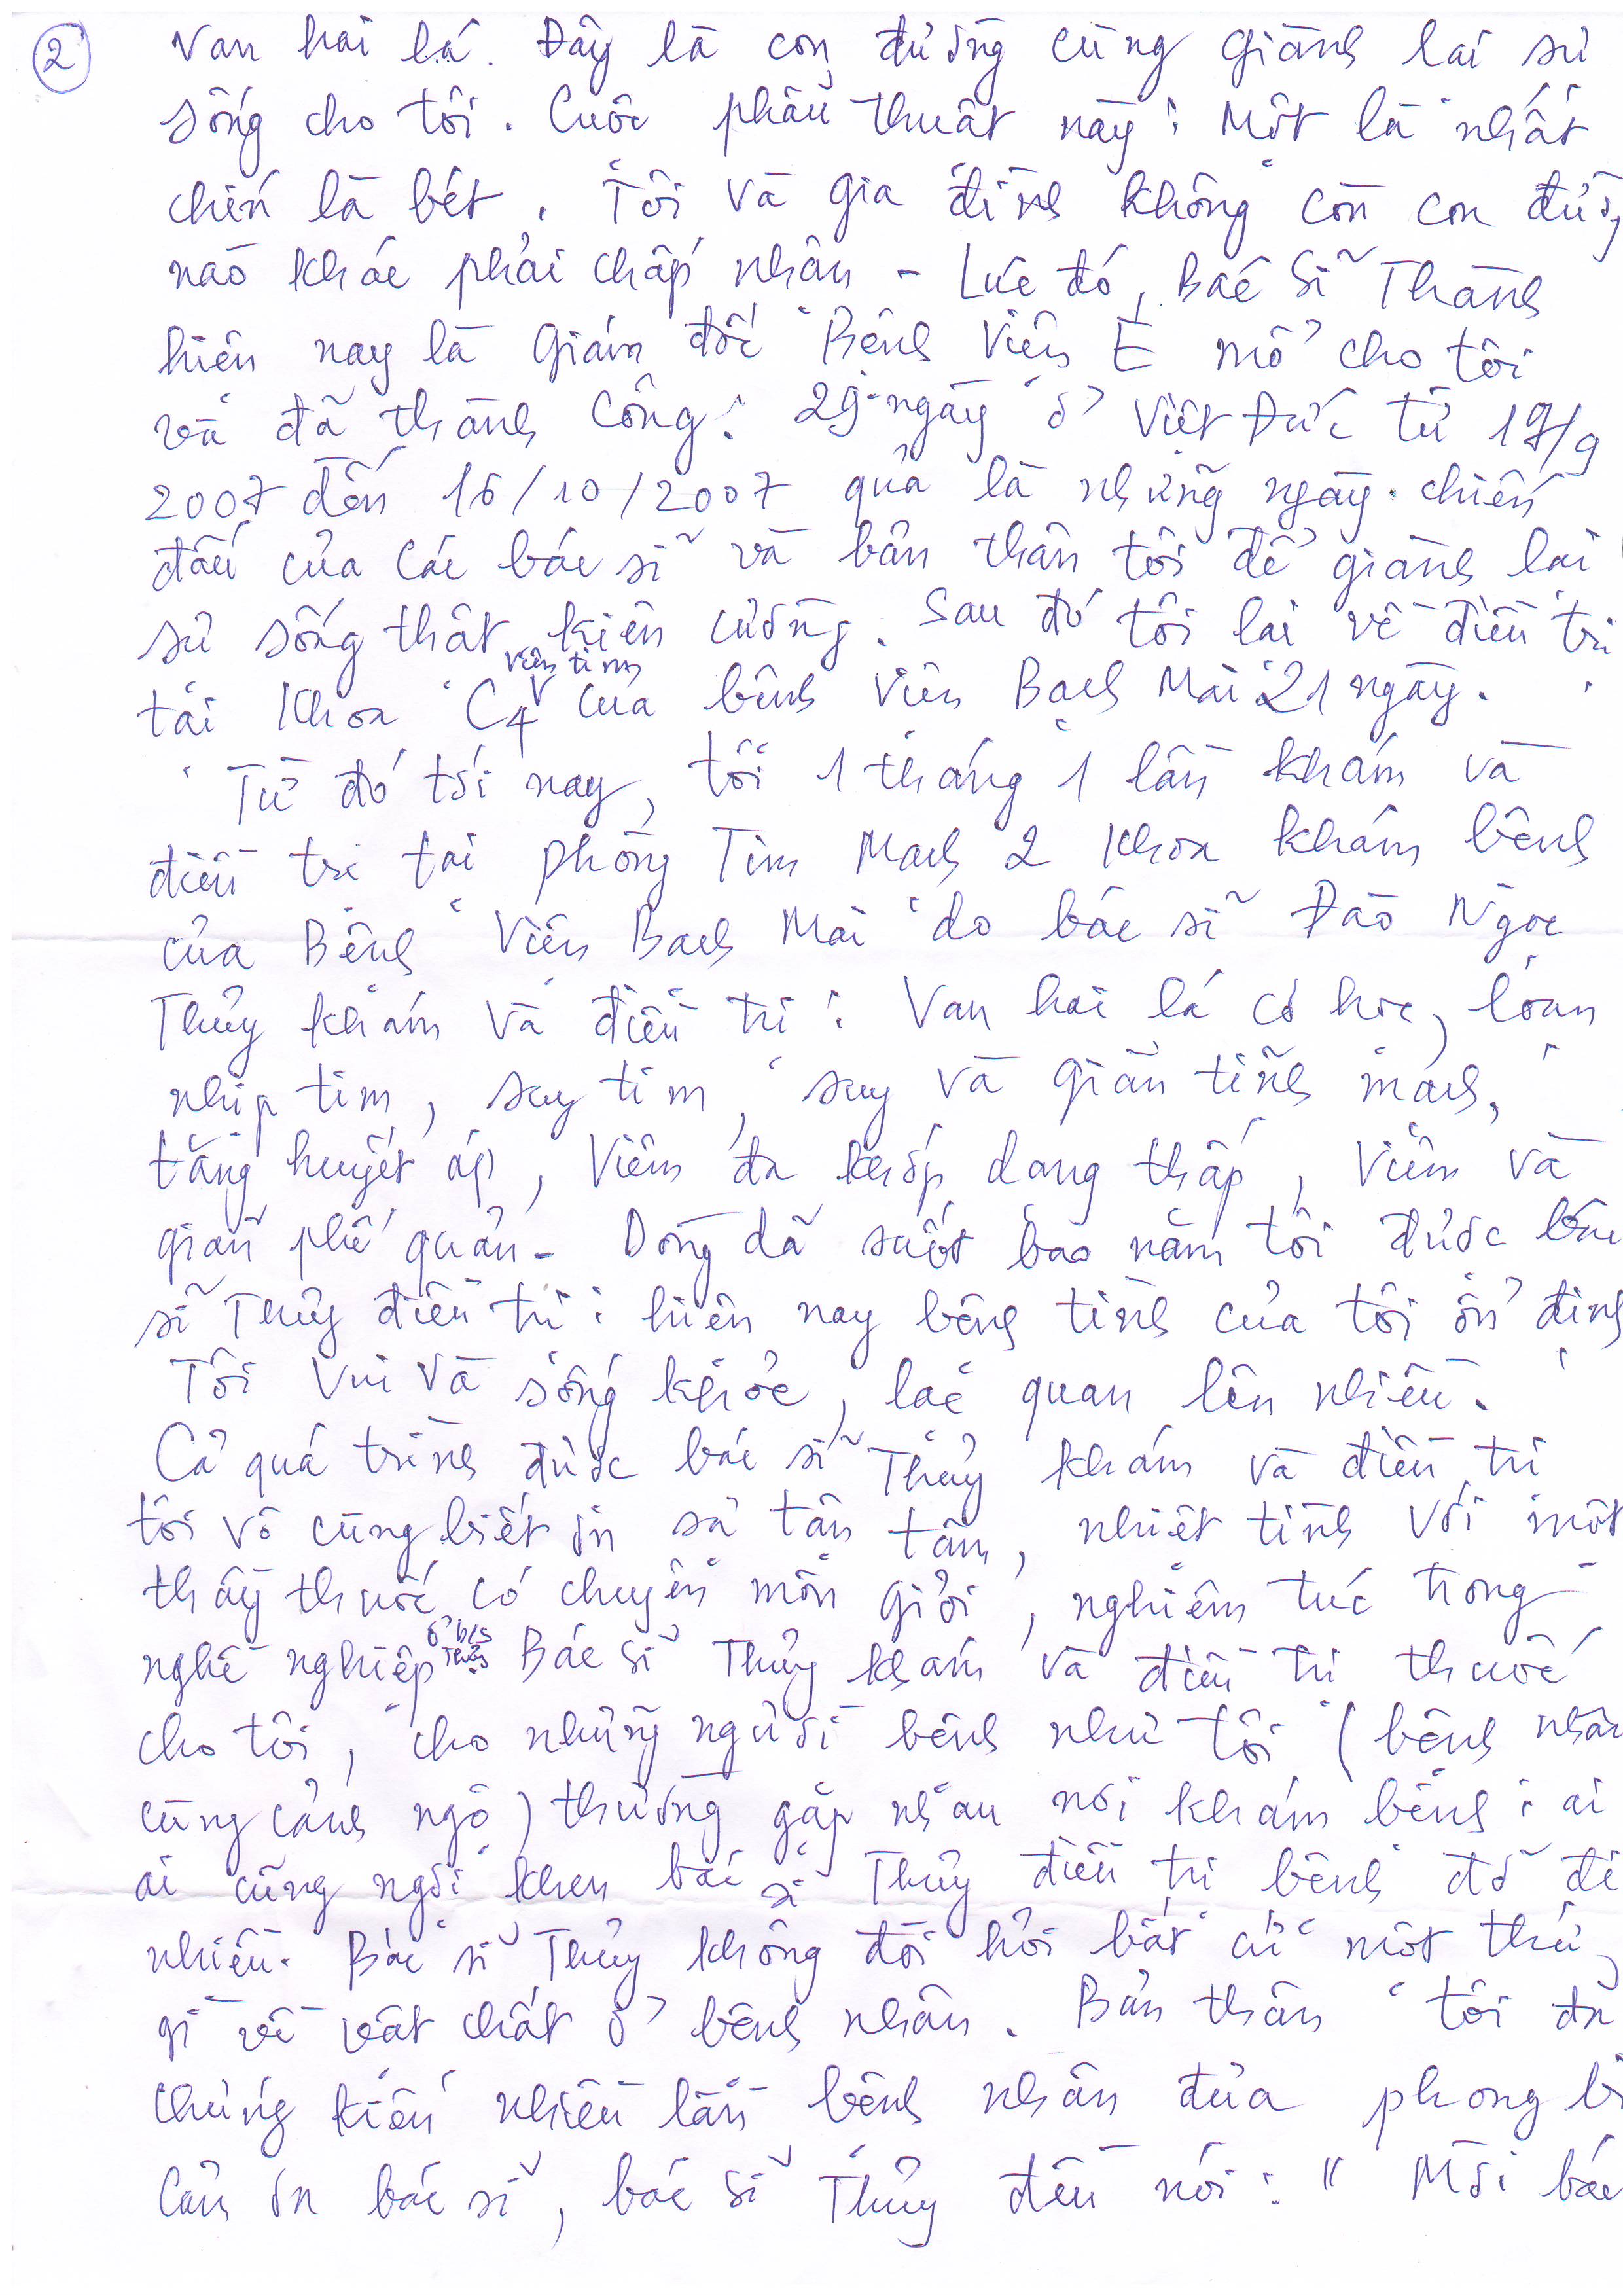 ② Van hai lá. Đây là con đường cùng giành lại sự
sống cho tôi. Cuộc phẫu thuật này: Một là nhất
chín là bét. Tôi và gia đình không còn con đường
nào khác phải chấp nhận - Lúc đó, Bác sĩ Thành
hiện nay là Giám đốc Bệnh Viện E mổ cho tôi
và đã thành công: 29 ngày ở Việt Đức từ 17/9
2007 đến 16/10/2007 quả là những ngày chiến
đấu của các bác sĩ và bản thân tôi để giành lại
sự sống thật kiên cường. Sau đó tôi lại về điều trị
tại Khoa C4 viện tim của bệnh viện Bạch Mai 21 ngày.
Từ đó tới nay, tôi 1 tháng 1 lần khám và
điều trị tại phòng Tim Mạch 2 Khoa khám bệnh
của Bệnh Viện Bạch Mai do bác sĩ Đào Ngọc
Thủy khám và điều trị: Van hai lá cơ học, loạn
nhịp tim, suy tim, suy và giãn tĩnh mạch,
tăng huyết áp, Viêm đa khớp dạng thấp, Viêm và
giãn phế quản - Dòng dã suốt bao năm tôi được bác
sĩ Thủy điều trị: hiện nay bệnh tình của tôi ổn định
Tôi vui và sống khỏe, lạc quan lên nhiều.
Cả quá trình được bác sĩ Thủy khám và điều trị
tôi vô cùng biết ơn sự tận tâm, nhiệt tình với một
thầy thuốc có chuyên môn giỏi, nghiêm túc trong
nghề nghiệp ở b/s Thủy Bác sĩ Thủy khám và điều trị thuốc
cho tôi, cho những người bệnh như tôi (bệnh nhân
cùng cảnh ngộ) thường gặp nhau nơi khám bệnh: ai
ai cũng ngợi khen bác sĩ Thủy điều trị bệnh đỡ đi
nhiều. Bác sĩ Thủy không đòi hỏi bất cứ một thứ
gì về vật chất ở bệnh nhân. Bản thân tôi đã
chứng kiến nhiều lần bệnh nhân đưa phong bì
cảm ơn bác sĩ, bác sĩ Thủy đều nói: " Mời bác